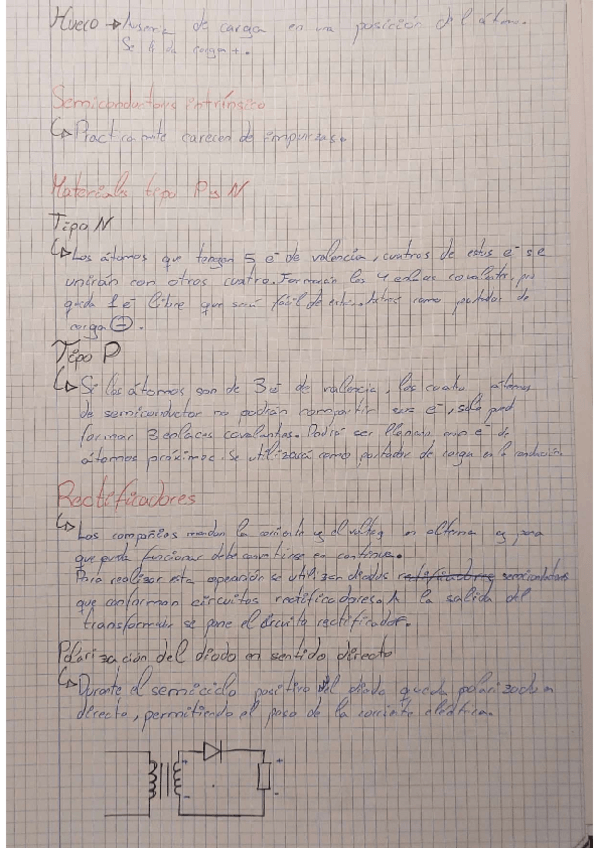 Hueco → Ausencia de carga en una posición del átomo.
Se le da carga +.
Semiconductores intrínseco
↳ Practicamente carecen de impurezas.
Materiales tipo P y N
Tipo N
↳ Los átomos que tengan 5 e⁻ de valencia, cuatros de estos e⁻ se
unirán con otros cuatro. Formarán los 4 enlac covalentes, pero
queda 1 e⁻ libre que será fácil de como portador de
carga ⊖.
Tipo P
↳ Si los átomos son de 3 e⁻ de valencia, los cuatro átomos
de semiconductor no podrán compartir sus e⁻, solo pod
formar 3 enlaces covalentes. Podrá ser llenado con e⁻ de
átomos próximos. Se utilizará como portador de carga en la conducción
Rectificadores
↳ Las compañías mandan la corriente y el voltaj en alterna y para
que pueda funcionar debe convertirse en continua.
Para realizar esta operación se utilizan diodos rectificadores semiconductores
que conforman circuitos rectificadores. A la salida del
transformador se pone el circuito rectificador.
Polarización del diodo en sentido directo
↳ Durante el semiciclo positivo el diodo queda polarizado en
directo, permitiendo el paso de la corriente eléctrica.
+ +
- -